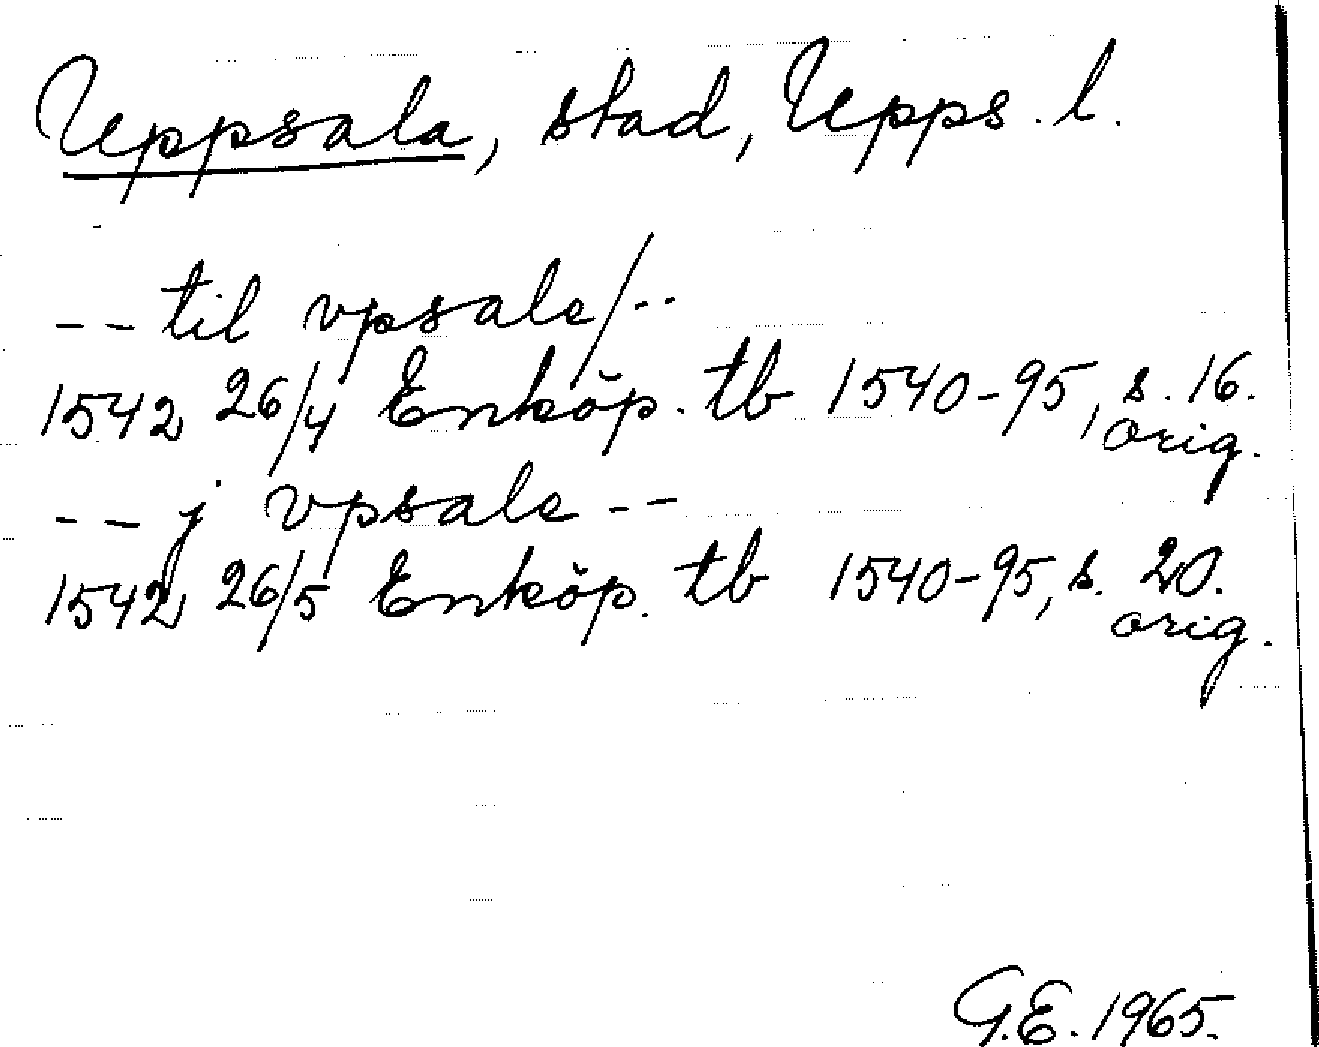 Uppsala, stad, Upps. l.
-- til vpsale/--
1542 26/4 Enköp. tb 1540-95, s. 16.
orig.
-- j vpsale --
1542 26/5 Enköp. tb 1540-95, s. 20.
orig.
G.E. 1965.